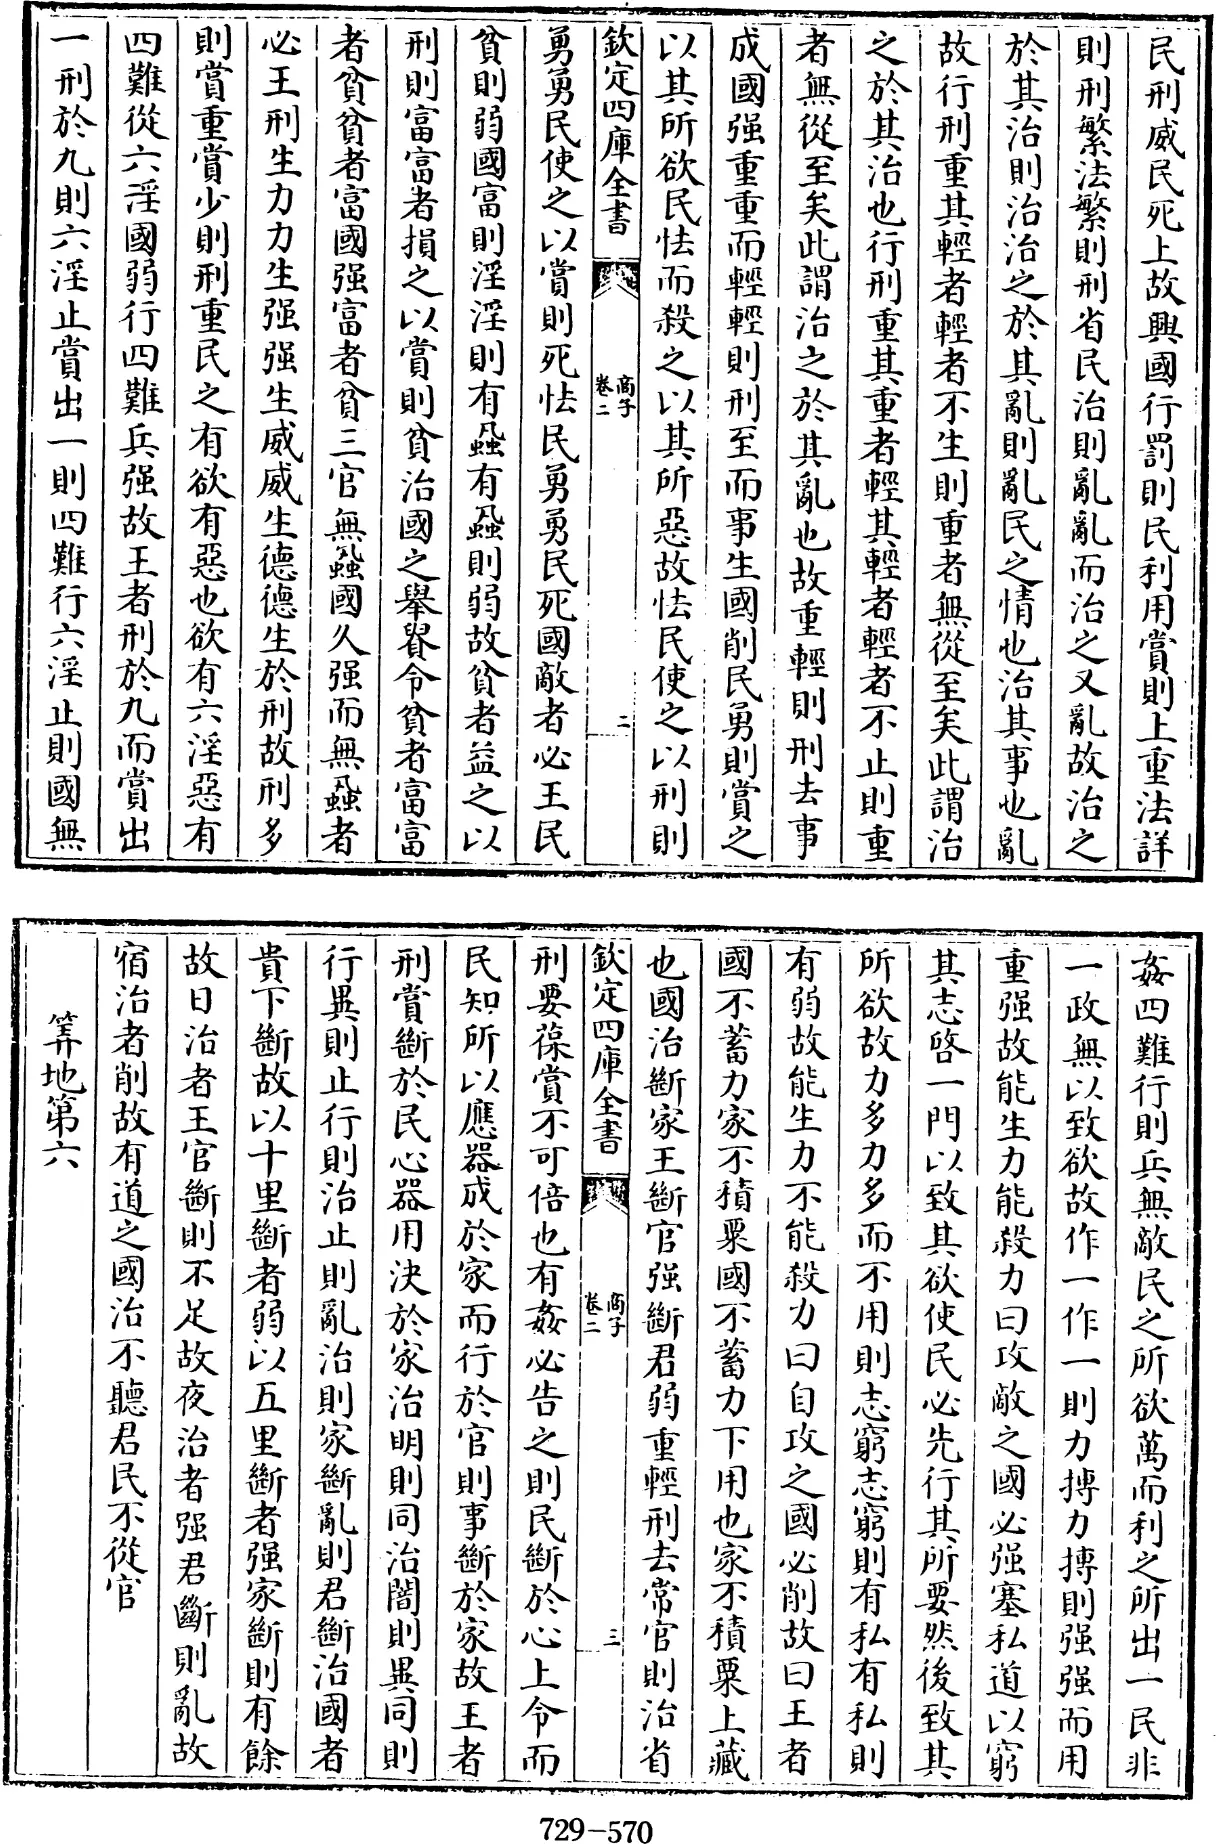 民刑威民死上故興國行罰則民利用賞則上重法詳
則刑繁法繁則刑省民治則亂亂而治之又亂故治之
於其治則治治之於其亂則亂民之情也治其事也亂
故行刑重其輕者輕者不生則重者無從至矣此謂治
之於其治也行刑重其重者輕其輕者輕者不止則重
者無從至矣此謂治之於其亂也故重輕則刑去事
成國强重重而輕輕則刑至而事生國削民勇則賞之
以其所欲民怯而殺之以其所惡故怯民使之以刑則
欽定四庫全書
商子
卷二
二
勇勇民使之以賞則死怯民勇勇民死國敵者必王民
貧則弱國富則淫淫則有蝨有蝨則弱故貧者益之以
刑則富富者損之以賞則貧治國之舉貴令貧者富富
者貧貧者富國强富者貧三官無蝨國久强而無蝨者
必王刑生力力生强强生威威生德德生於刑故刑多
則賞重賞少則刑重民之有欲有惡也欲有六淫惡有
四難從六淫國弱行四難兵强故王者刑於九而賞出
一刑於九則六淫止賞出一則四難行六淫止則國無
姦四難行則兵無敵民之所欲萬而利之所出一民非
一政無以致欲故作一作一則力摶力摶則强强而用
重强故能生力能殺力曰攻敵之國必强塞私道以窮
其志啓一門以致其欲使民必先行其所要然後致其
所欲故力多力多而不用則志窮志窮則有私有私則
有弱故能生力不能殺力曰自攻之國必削故曰王者
國不蓄力家不積粟國不蓄力下用也家不積粟上藏
也國治斷家王斷官强斷君弱重輕刑去常官則治省
欽定四庫全書
商子
卷二
三
刑要葆賞不可倍也有姦必告之則民斷於心上令而
民知所以應器成於家而行於官則事斷於家故王者
刑賞斷於民心器用決於家治明則同治闇則異同則
行異則止行則治止則亂治則家斷亂則君斷治國者
貴下斷故以十里斷者弱以五里斷者强家斷則有餘
故曰治者王官斷則不足故夜治者强君斷則亂故
宿治者削故有道之國治不聽君民不從官
筭地第六
729-570